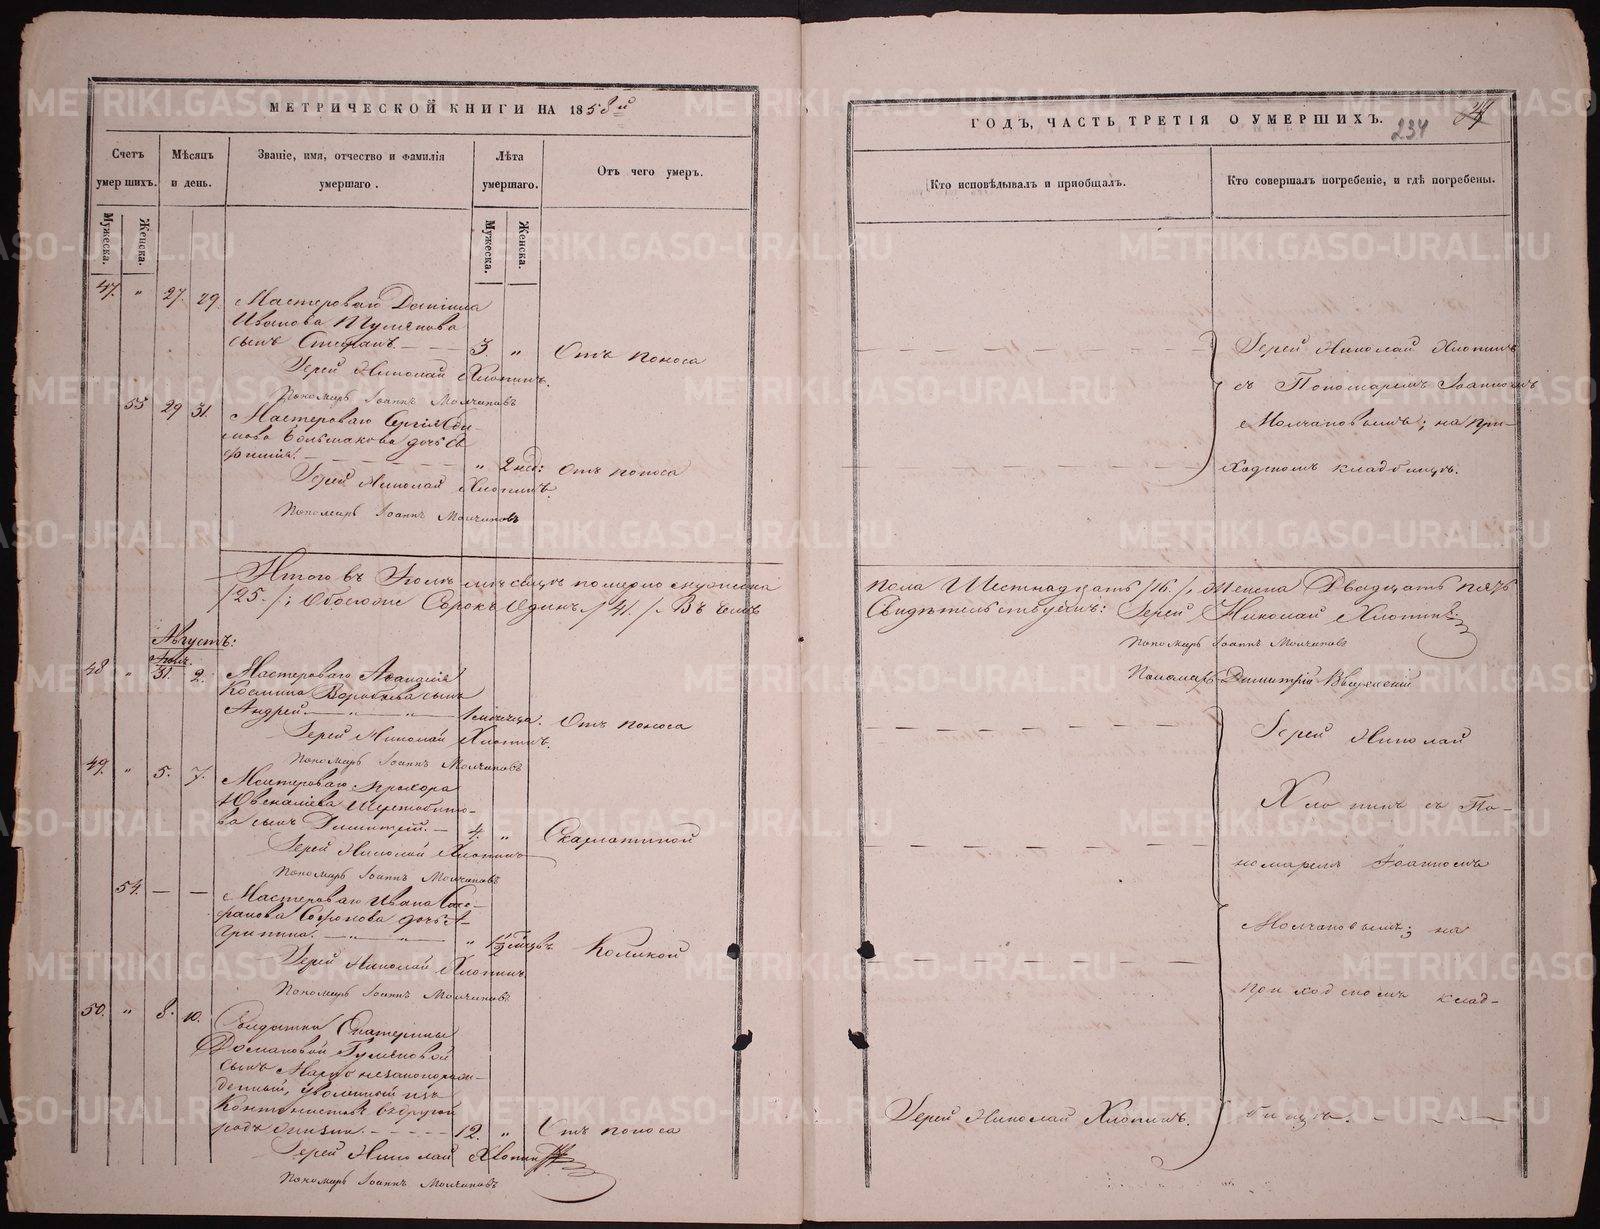 МЕТРИЧЕСКОЙ КНИГИ НА 1858й
Счетъ умерших.
Мѣсяцъ и день.
Званіе, имя, отчество и фамилія умершаго.
Лѣта умершаго.
Отъ чего умеръ.
Мужеска.
Женска.
Мужеска.
Женска.
47. " 27. 29. Мастероваго Даніила
Иванова Туленова
сынъ Стефанъ. 3 " Отъ поноса
Іерей Николай Хлопинъ.
Пономарь Іоаннъ Молчановъ
55 29 31. Мастероваго Сергія
Большакова дочь
" 2 нед: Отъ поноса
Іерей Николай Хлопинъ.
Пономарь Іоаннъ Молчановъ
Итого въ Іюлѣ мѣсяцѣ померло мужеска
/25./; обоего же Сорокъ одинъ /41/. Въ чемъ
Августъ:
Іюль.
48 " 31. 2. Мастероваго
Космина Воробьева сынъ
Андрей 1 мѣсяца. Отъ поноса
Іерей Николай Хлопинъ.
Пономарь Іоаннъ Молчановъ
49. " 5. 7. Мастероваго Прохора
Ювеналіева
ва сынъ Димитрій. 4. " Скарлатиной
Іерей Николай Хлопинъ
Пономарь Іоаннъ Молчановъ
54. — — Мастероваго Ивана
Софонова дочь А-
грипина. " 1½ мѣсяцевъ Коликой
Іерей Николай Хлопинъ.
Пономарь Іоаннъ Молчановъ
50. " 8. 10. Солдатки Екатерины
Гуменовой
сынъ незаконорож-
денный, уволенный изъ
Кантонистовъ въ другой
родъ жизни. 12. " Отъ поноса
Іерей Николай Хлопинъ
Пономарь Іоаннъ Молчановъ
ГОДЪ, ЧАСТЬ ТРЕТІЯ О УМЕРШИХЪ.
234
Кто исповѣдывалъ и пріобщалъ.
Кто совершалъ погребеніе, и гдѣ погребены.
Іерей Николай Хлопинъ
съ Пономаремъ Іоанномъ
Молчановымъ; на при-
ходскомъ кладбищѣ.
пола Шестнадцать /16./, Женска Двадцать пять
Свидѣтельствуемъ: Іерей Николай Хлопинъ.
Пономарь Іоаннъ Молчановъ
Пономарь Димитрій Введенскій
Іерей Николай
Хлопинъ съ По-
номаремъ Іоанномъ
Молчановымъ; на
приходскомъ клад-
Іерей Николай Хлопинъ. бищѣ.
METRIKI.GASO-URAL.RU